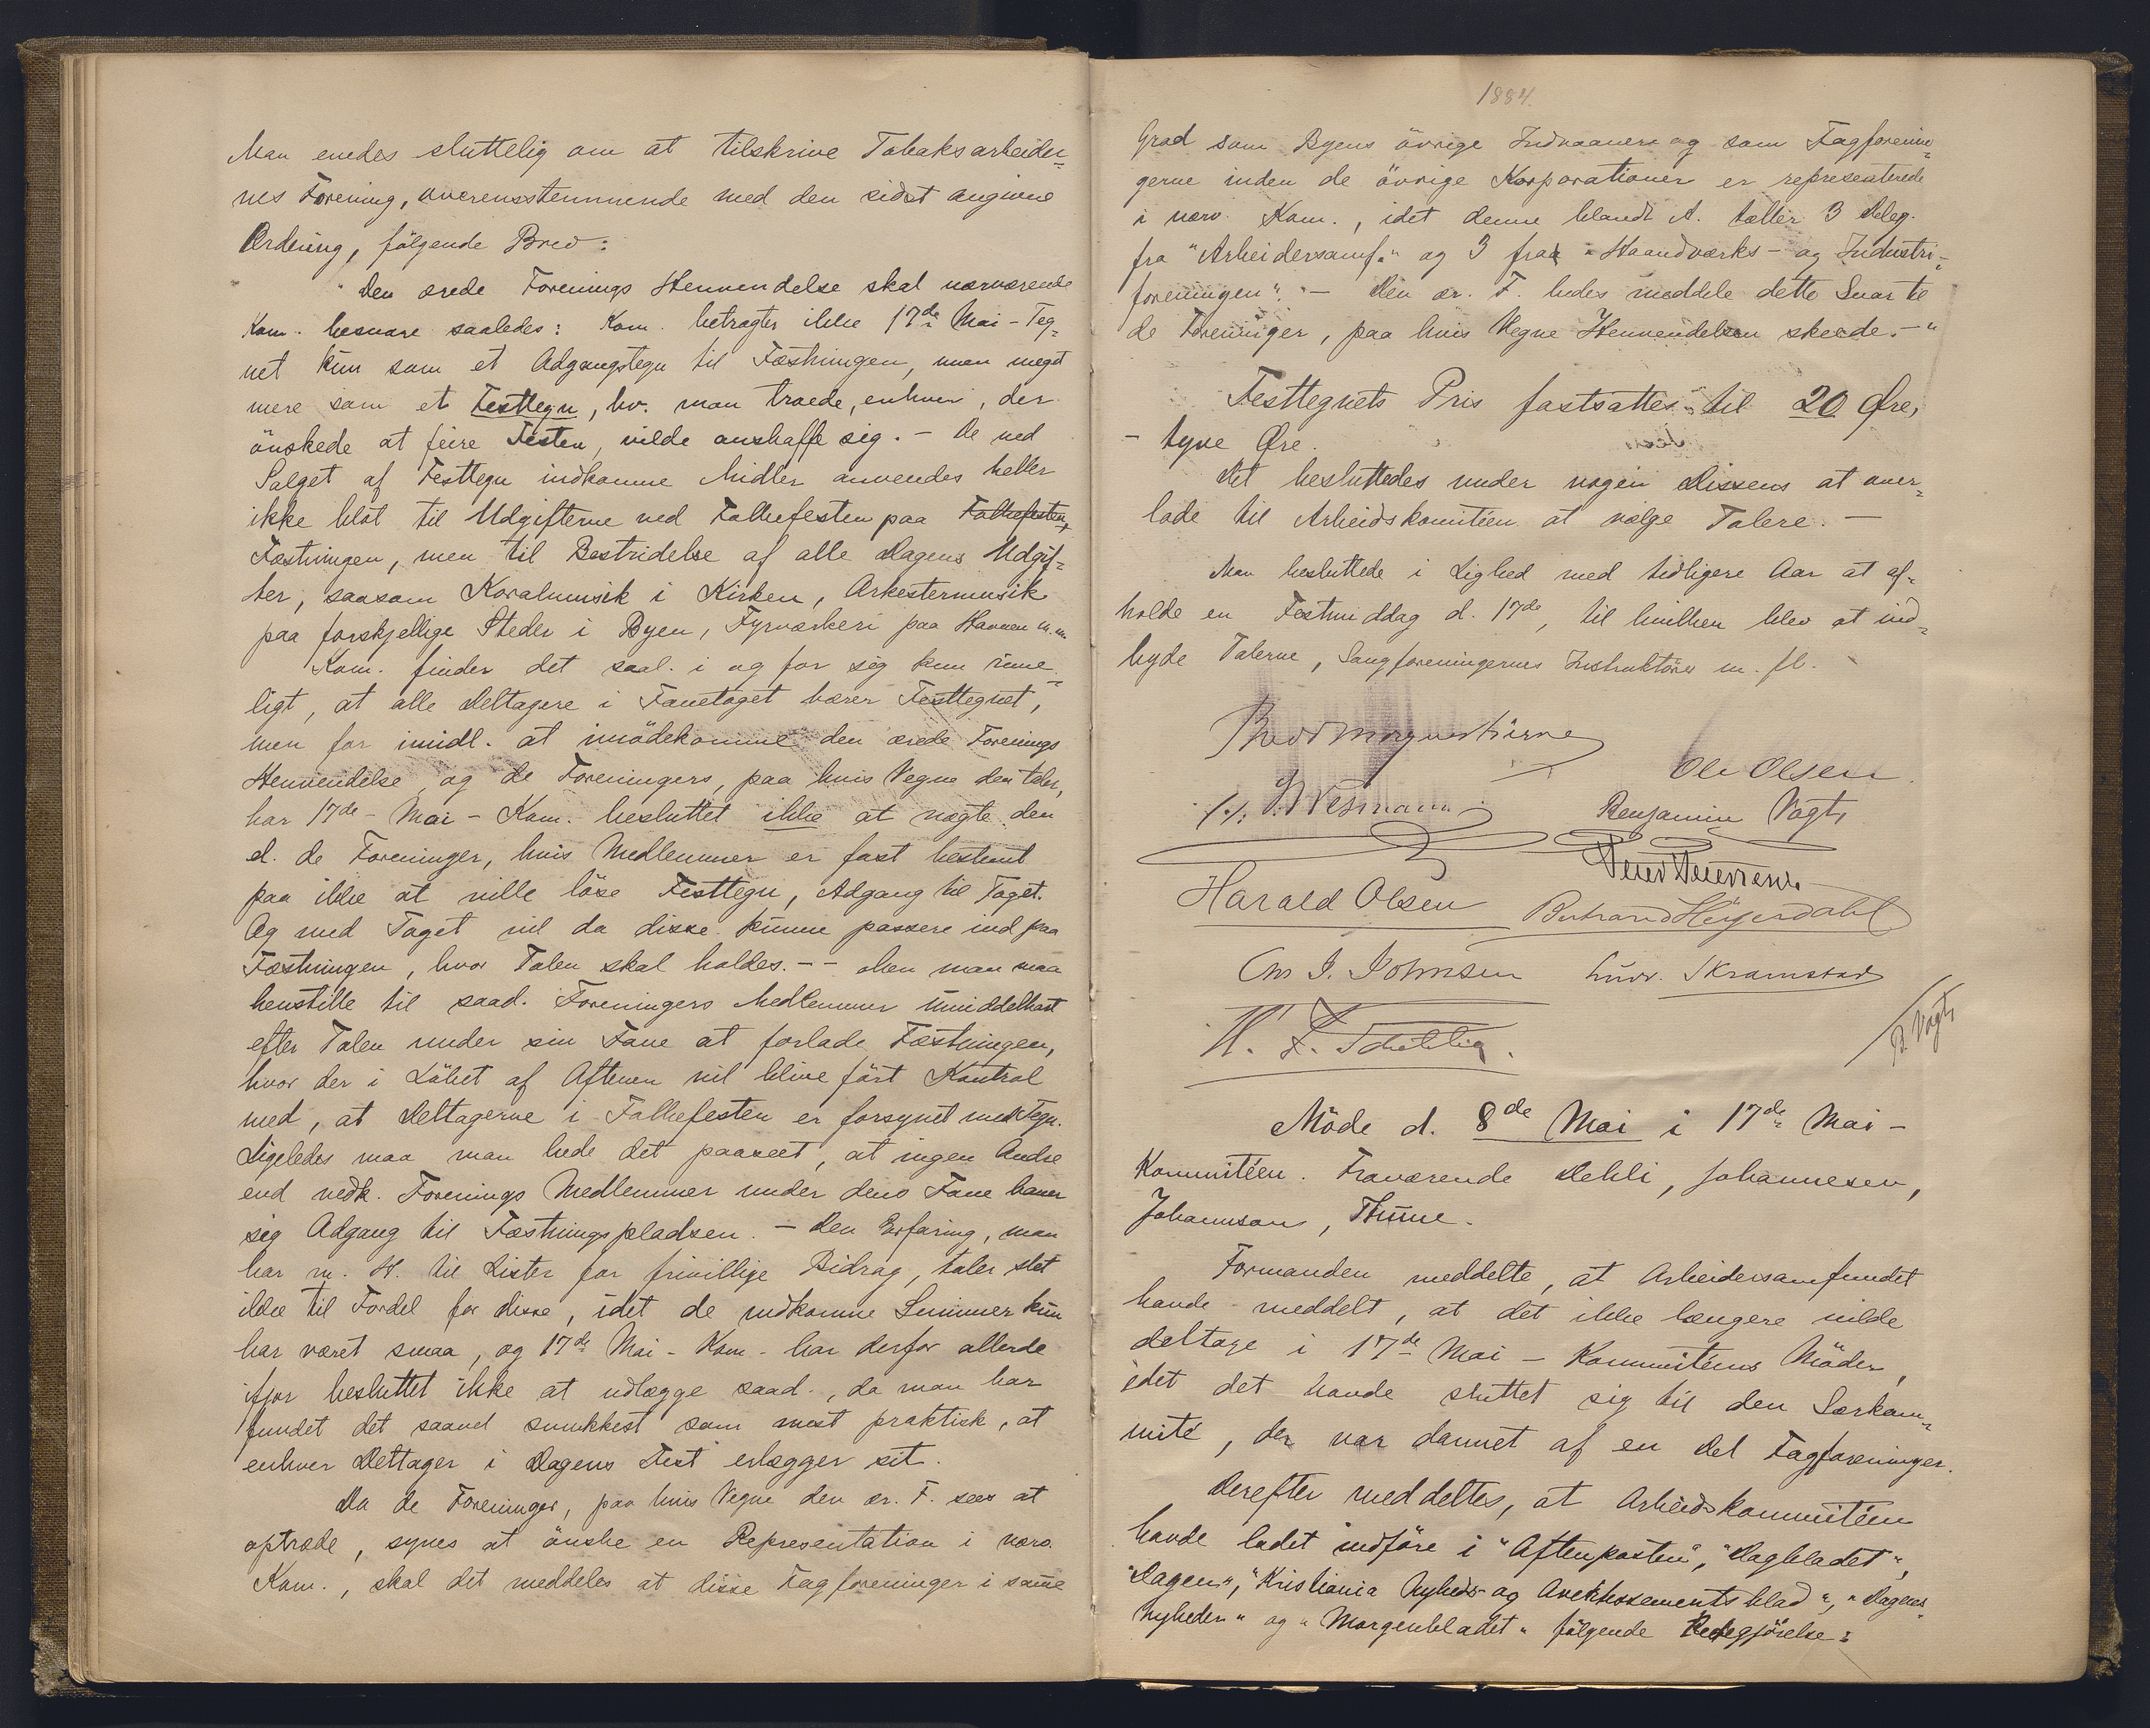 Man enedes sluttelig om at tilskrive Tobaksarbeider-
nes Forening, overensstemmende med den sidst angivne
Ordning, følgende Brev:
"Den ærede Forenings Henvendelse skal nærværende
Kom. besvare saaledes: Kom. betragter ikke 17de Mai-Teg-
net kun som et Adgangstegn til Fæstningen, men meget
mere som et Festtegn, hv. man troede, enhver, der
önskede at feire Festen, vilde anskaffe sig. - De ved
Salget af Festtegn indkomne Midler anvendes heller
ikke blot til Udgifterne ved Folkefesten paa Folkefesten,
Fæstningen, men til Bestridelse af alle Dagens Udgif-
ter, saasom Koralmusik i Kirken, Orkestermusik
paa forskjellige Steder i Byen, Fyrværkeri paa Havnen m.m
Kom. finder det saal. i og for sig kun rime-
ligt, at alle Deltagere i Fanetoget bærer Festtegnet,
men for imidl. at imödekomme den ærede Forenings
Henvendelse og de Foreningers, paa hvis Vegne den taler,
har 17de-Mai-Kom. besluttet ikke at nægte den
el. de Foreninger, hvis Medlemmer er fast bestemt
paa ikke at ville löse Festtegn, Adgang til Toget.
Og med Toget vil da disse kunne passere ind paa
Fæstningen, hvor Talen skal holdes. -- Men man maa
henstille til saad. Foreningers Medlemmer umiddelbart
efter Talen under sin Fane at forlade Fæstningen,
hvor der i Löbet af Aftenen vil blive fört Kontrol
med, at Deltagerne i Folkefesten er forsynet med Tegn.
Ligeledes maa man bede det paaseet, at ingen Andre
end vedk. Forenings Medlemmer under dens Fane baner
sig Adgang til Fæstningspladsen. - Den Erfaring, man
har m. H. til Lister for frivillige Bidrag, taler slet
ikke til Fordel for disse, idet de indkomne Summer kun
har været smaa, og 17de Mai-Kom. har derfor allerede
ifjor besluttet ikke at udlægge saad., da man har
fundet det saavel smukkest som mest praktisk, at
enhver Deltager i Dagens Fest erlægger sit.
Da de Foreninger, paa hvis Vegne den ær. F. sees at
optræde, synes at önske en Repræsentation i nærv.
Kom., skal det meddeles at disse Fagforeninger i samme
1884.
Grad som Byens övrige Indvaanere og som Fagforenin-
gerne inden de övrige Korporationer er repræsenterede
i nærv. Kom., idet denne blandt A. tæller 3 Deleg.
fra "Arbeidersamf." og 3 fra "Haandværks- og Industri-
foreningen". - Den ær. F. bedes meddele dette Svar til
de Foreninger, paa hvis Vegne Henvendelsen skeede. -"
Festtegnets Pris fastsattes til 20 Øre,
- tyve Øre.
Det besluttedes under nogen Dissens at over-
lade til Arbeidskomitéen at vælge Talere. -
Man besluttede i Lighed med tidligere Aar at af-
holde en Festmiddag d. 17de, til hvilken blev at ind-
byde Talerne, Sangforeningernes Instruktörer m. fl.
Bredo Morgenstierne
Ole Olsen
Benjamin Vogt,
Harald Olsen
Bertrand Heyerdahl
Chr J. Johnsen
Ludv. Skramstad
B. Vogt,
Möde d. 8de Mai i 17de Mai-
Kommitéen. Fraværende Dehli, Johannesen,
Johannson, Thune.
Formanden meddelte, at Arbeidersamfundet
havde meddelt, at det ikke længere vilde
deltage i 17de Mai-Kommitéens Möder,
idet det havde sluttet sig til den Særkom-
mité, der var dannet af en Del Fagforeninger.
Derefter meddeltes, at Arbeidskommitéen
havde ladet indföre i "Aftenposten", "Dagbladet",
"Dagen", "Kristiania Nyheds- og Avertissementsblad", "Dagens
Nyheder" og "Morgenbladet" fölgende Redegjörelse: